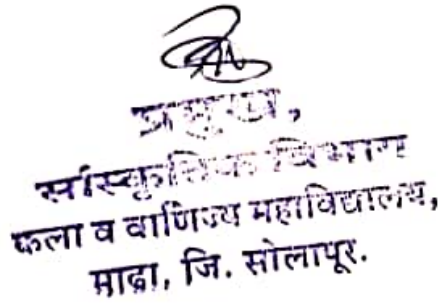 प्रमुख,
सांस्कृतिक विभाग
कला व वाणिज्य महाविद्यालय,
माढा, जि. सोलापूर.